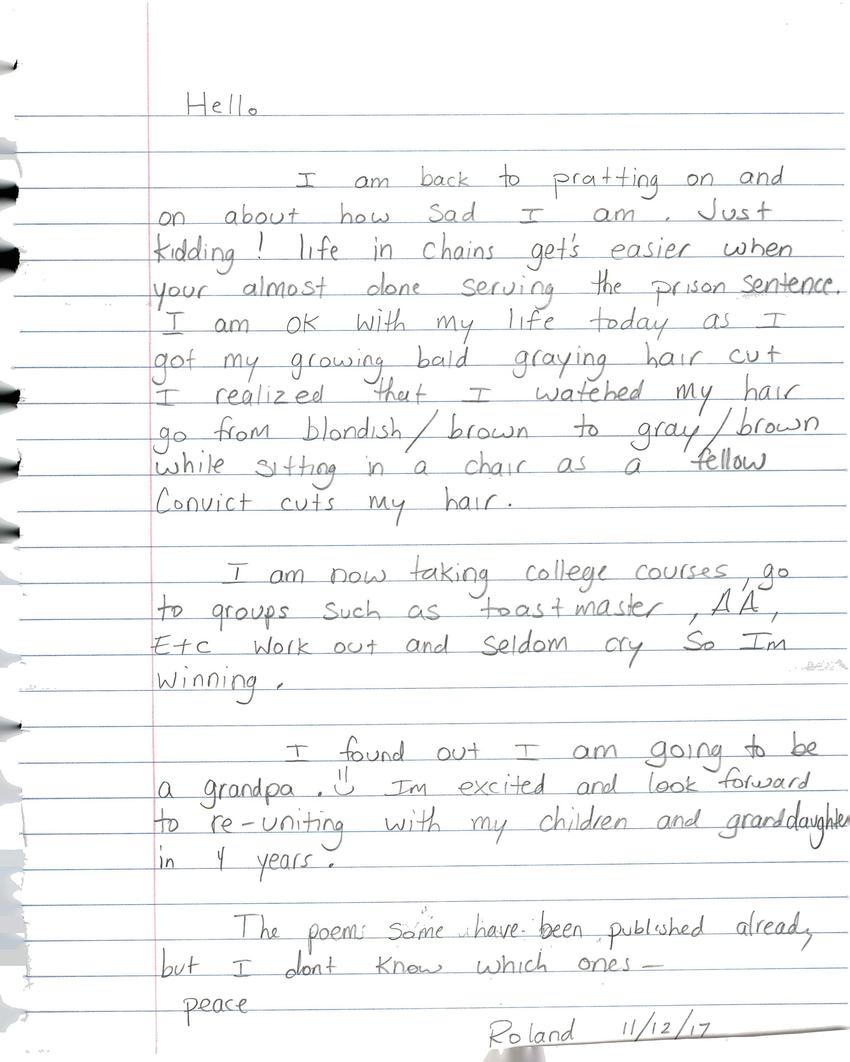 Hello
I am back to pratting on and
on about how sad I am. Just
kidding! life in chains get's easier when
your almost done serving the prison sentence.
I am OK with my life today as I
got my growing bald graying hair cut
I realized that I watched my hair
go from blondish/brown to gray/brown
while sitting in a chair as a fellow
Convict cuts my hair.
I am now taking college courses, go
to groups such as toastmaster, AA,
Etc work out and seldom cry So Im
winning.
I found out I am going to be
a grandpa. Im excited and look forward
to re-uniting with my children and granddaughter
in 4 years.
The poems some have been published already
but I dont know which ones—
peace
Roland 11/12/17